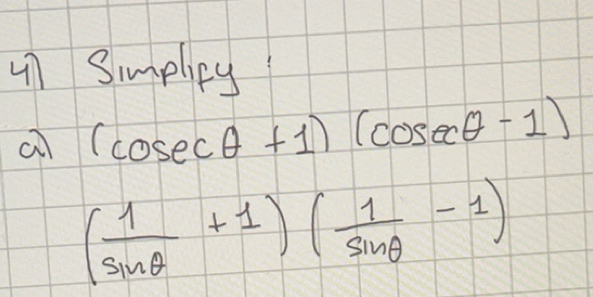 4) Simplify:
a) (cosec θ + 1) (cosec θ - 1)
(1/sin θ + 1) (1/sin θ - 1)